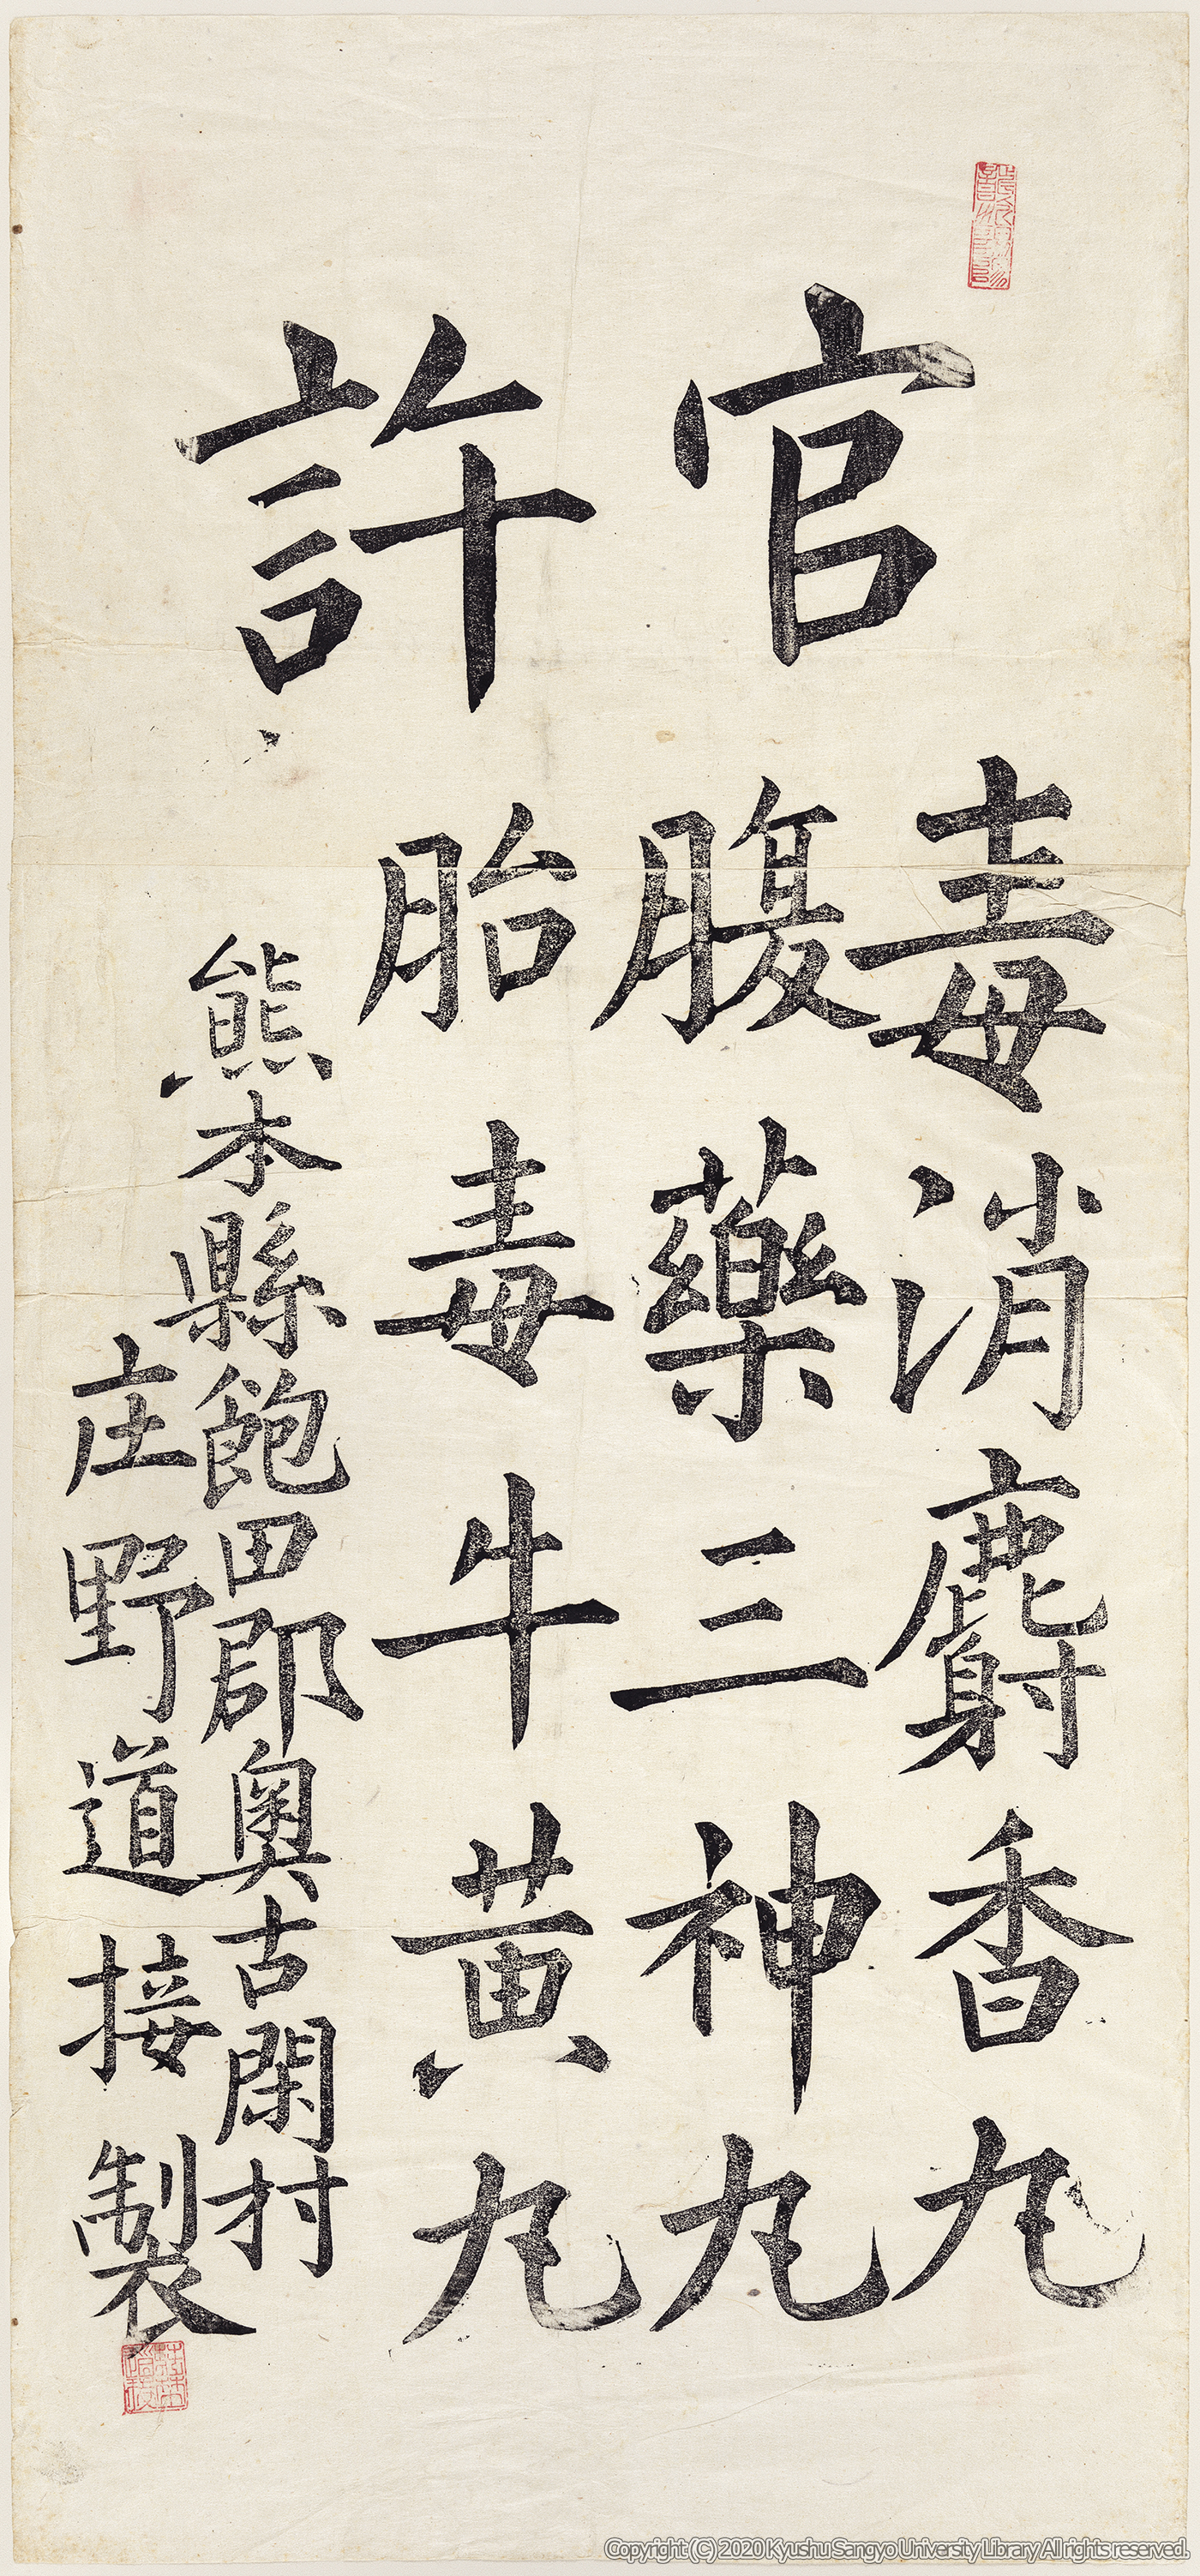 官許
毒消麝香丸
腹薬三神丸
胎毒牛黄丸
熊本縣飽田郡奥古閑村
庄野道接製
Copyright (C) 2020 Kyushu Sangyo University Library All rights reserved.